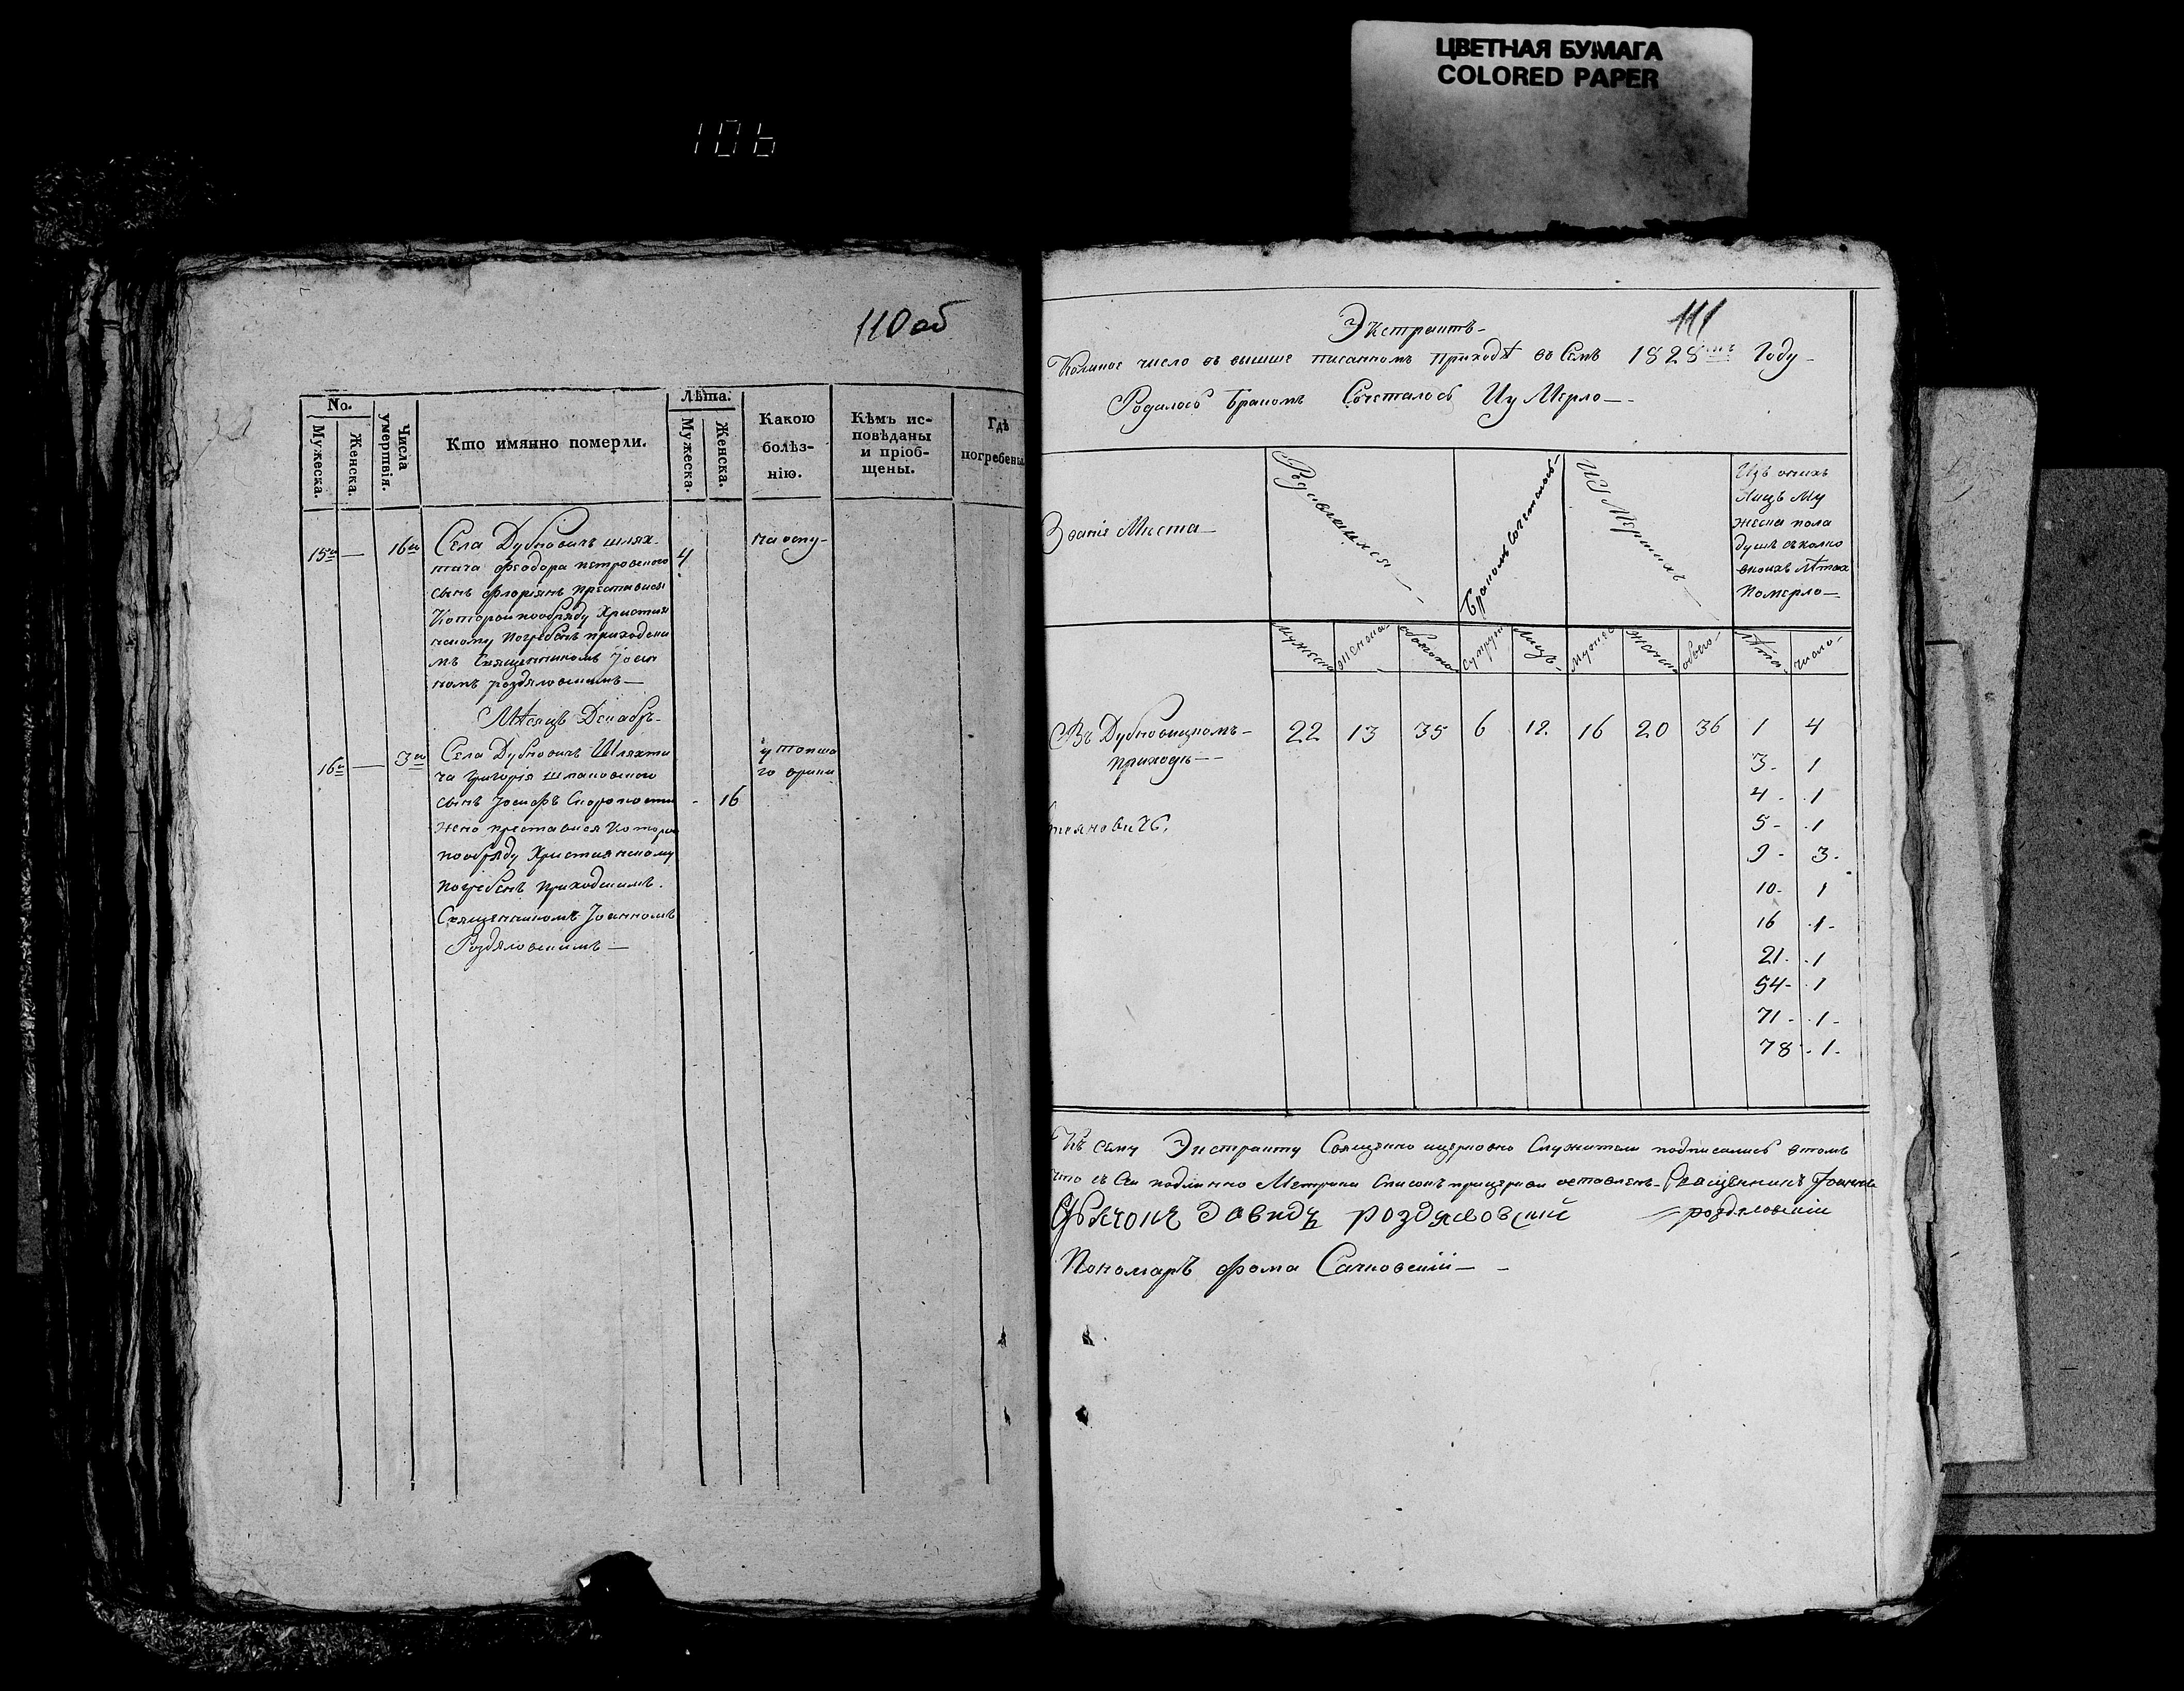 ЦВЕТНАЯ БУМАГА
COLORED PAPER
106
110 об
No.
Мужеска.
Женска.
Числа умертвія.
Кто имянно померли.
Лѣта.
Мужеска.
Женска.
Какою
болѣз-
нію.
Кѣмъ ис-
повѣданы
и пріоб-
щены.
Гдѣ
погребены
15й — 16го
Села Дубновичъ шлях-
тича Феодора петровского
сынъ Флоріянъ преставися
Которой пообряду Христия
нскому погребенъ приходски
мъ Священникомъ Іоан
номъ роздяловскимъ —
4
на оспу-
Мѣсяцъ Декабрь-
16й — 3го
Села Дубновичъ Шляхти
ча Григорія шпаковского
сынъ Іосифъ Скоропости
жно преставися которой
пообряду Християнскому
погребенъ приходскимъ.
Священникомъ Іоанномъ
Роздяловскимъ —
- 16
111
Экстрактъ-
Коликое число въ вышше писанномъ приходѣ въ Семъ 1828мъ Году-
Родилось Бракомъ Сочеталось Изъ Мерло —
Званіе Мѣста —
Родившихся —
Бракомъ сочеталось-
Изъ Мершихъ —
Изъ оныхъ
Лицъ Му
жеска пола
душъ сколко
вкоихъ лѣтах
Померло —
Мужеска
Женска
обоего
супруж
Лицъ-
Мужеск
Женска
обоего-
лѣта-
число-
Въ Дубновицкомъ-
приходѣ —
22 13 35 6 12. 16 20 36 1 4
3- 1
4- 1
5- 1
9- 3.
10- 1
16 1-
21- 1
54- 1
71- 1-
78- 1-
Къ сему Экстракту Священно ицерковно Служители подписались втомъ
что съ Сей подлинно Метрики Списокъ прицеркви оставленъ- Священникъ Іоаннъ
роздяловскій
Дьячокъ Давидъ роздяловский
Пономаръ Фома Сачковскій —